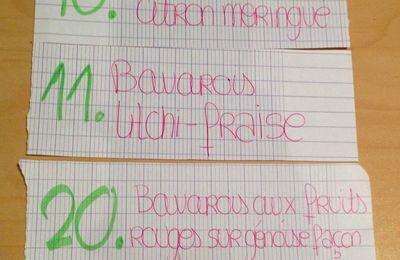 10. Citron meringue
11. Bavarois
Litchi-fraise
20. Bavarois aux fruits
rouges sur génoise façon